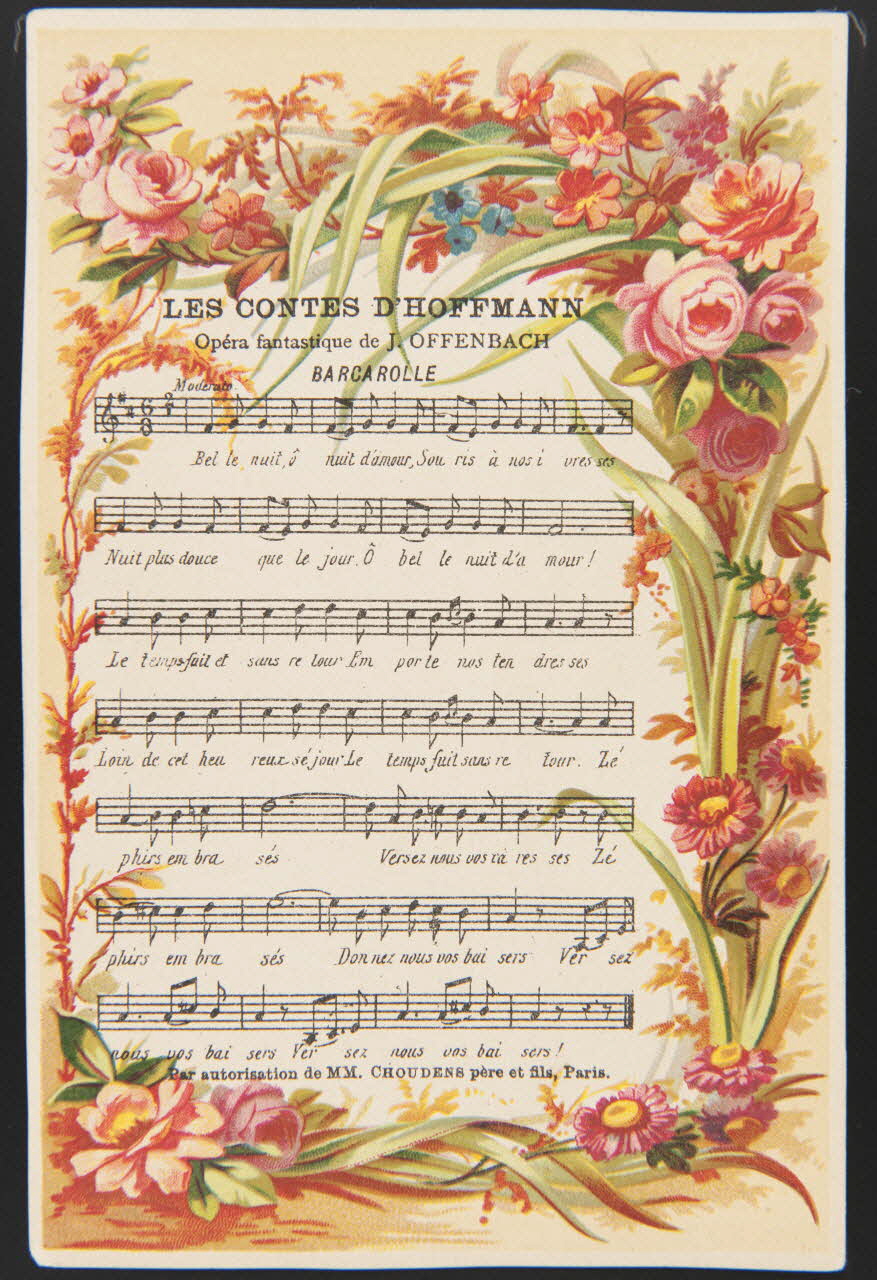 LES CONTES D'HOFFMANN
Opéra fantastique de J. OFFENBACH
BARCAROLLE
Moderato
Bel le nuit, ô nuit d'amour, Sou ris à nos i vres ses
Nuit plus douce que le jour. Ô bel le nuit d'a mour!
Le temps fuit et sans re tour Em por te nos ten dres ses
Loin de cet heu reux séjour. Le temps fuit sans re tour. Zé
phirs em bra sés Versez nous vos ca res ses Zé
phirs em bra sés Donnez nous vos bai sers Ver sez
nous vos bai sers Ver sez nous vos bai sers!
Par autorisation de MM. CHOUDENS père et fils, Paris.